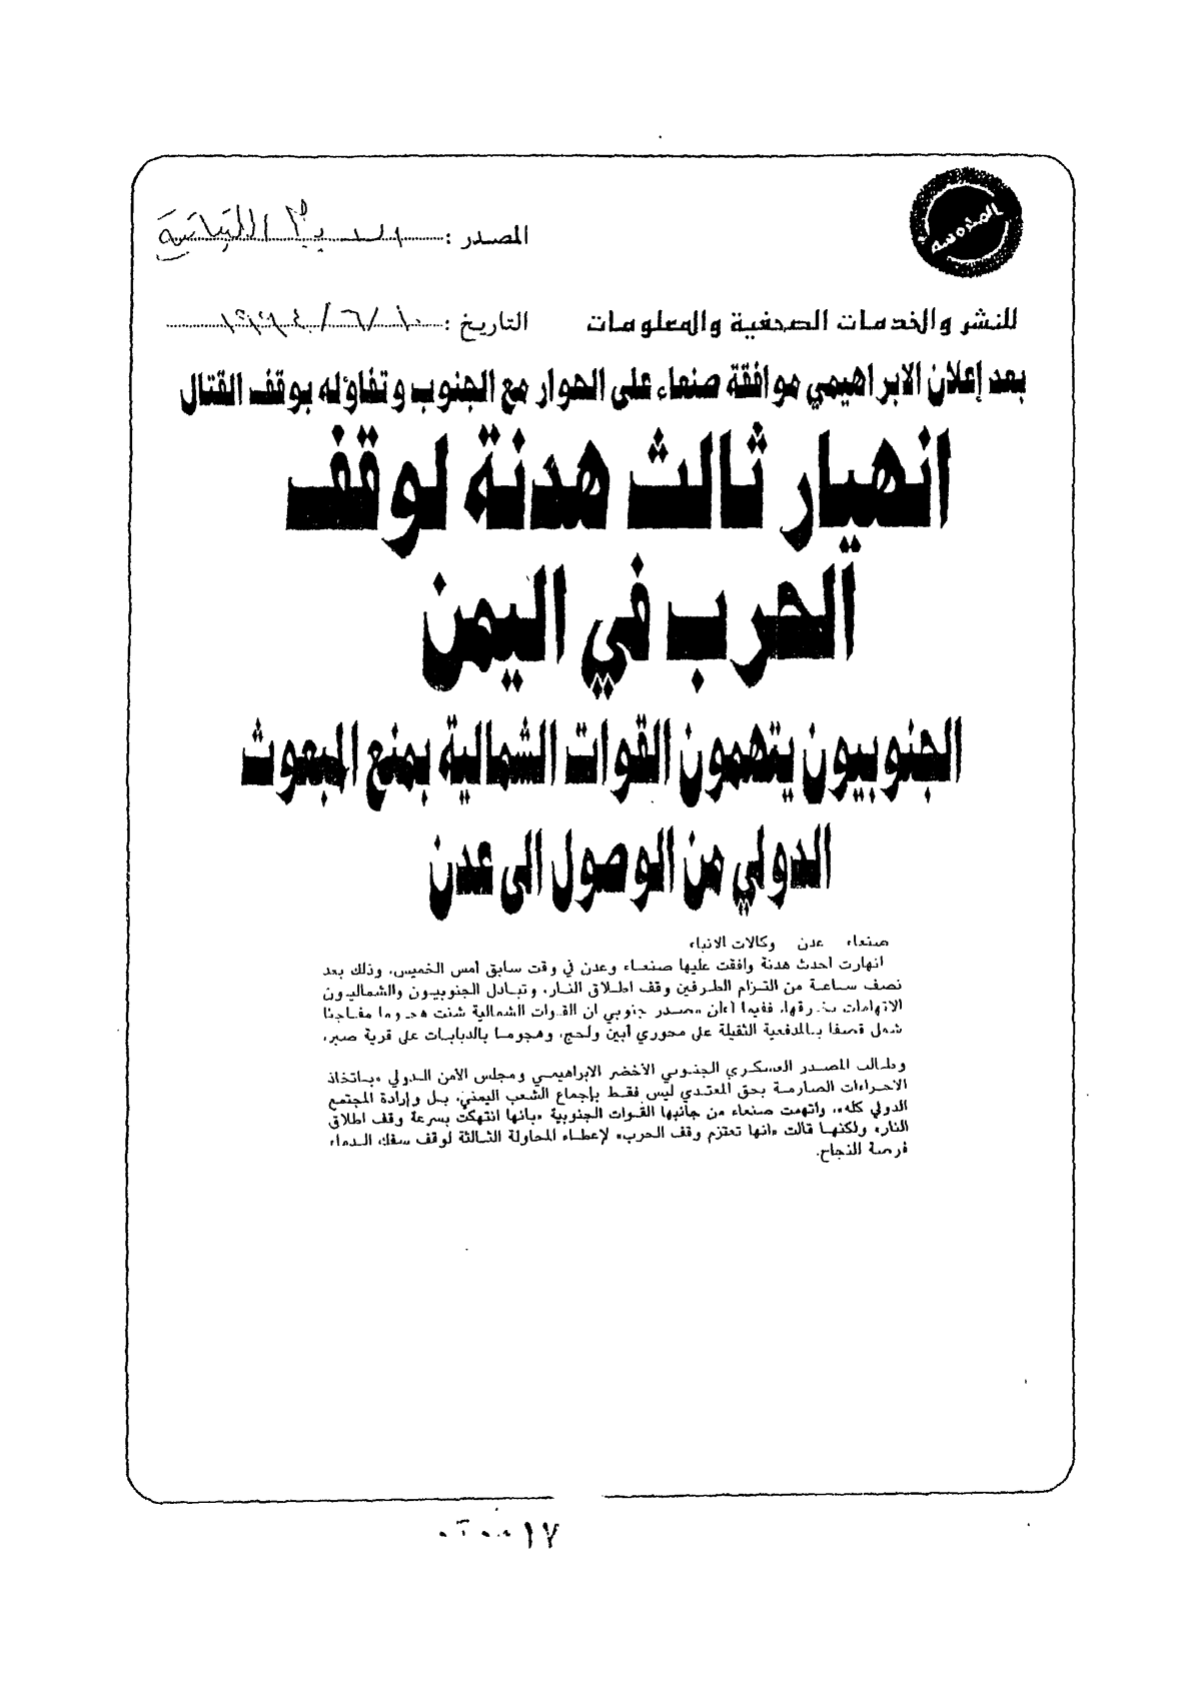 المدوسة
المصدر :
للنشر والخدمات الصحفية والمعلومات
التاريخ : ١٠/٦/١٩٩٤
بعد إعلان الابراهيمي موافقة صنعاء على الحوار مع الجنوب وتفاؤله بوقف القتال
انهيار ثالث هدنة لوقف
الحرب في اليمن
الجنوبيون يتهمون القوات الشمالية بمنع المبعوث
الدولي من الوصول الى عدن
صنعاء عدن وكالات الانباء
انهارت احدث هدنة وافقت عليها صنعاء وعدن في وقت سابق أمس الخميس، وذلك بعد
نصف ساعة من التزام الطرفين وقف اطلاق النار، وتبادل الجنوبيون والشماليون
الاتهامات بخرقها، ففيما أعلن مصدر جنوبي ان القوات الشمالية شنت هجوما مفاجئا
شمل قصفا بالمدفعية الثقيلة على محوري أبين ولحج، وهجوما بالدبابات على قرية صبر،
وطالب المصدر العسكري الجنوبي الأخضر الابراهيمي ومجلس الأمن الدولي «باتخاذ
الاجراءات الصارمة بحق المعتدي ليس فقط بإجماع الشعب اليمني، بل وإرادة المجتمع
الدولي كله»، واتهمت صنعاء من جانبها القوات الجنوبية «بانها انتهكت بسرعة وقف اطلاق
النار» ولكنها قالت «انها تعتزم وقف الحرب» لإعطاء المحاولة الثالثة لوقف سفك الدماء
فرصة للنجاح.